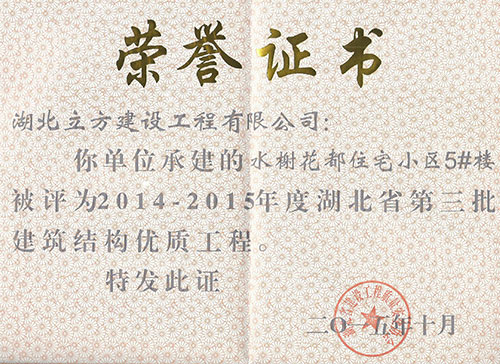 荣誉证书
湖北立方建设工程有限公司：
你单位承建的水榭花都住宅小区5#楼
被评为2014-2015年度湖北省第三批
建筑结构优质工程。
特发此证
二〇一五年十月